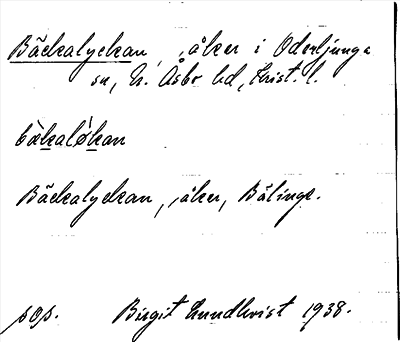 Bäckalyckan, åker i Oderljunga
sn, N. Åsbo hd, Krist. l.
bæ̀kaløkan
Bäckalyckan, åker, Bälinge.
pop. Birgit Lundkvist 1938.